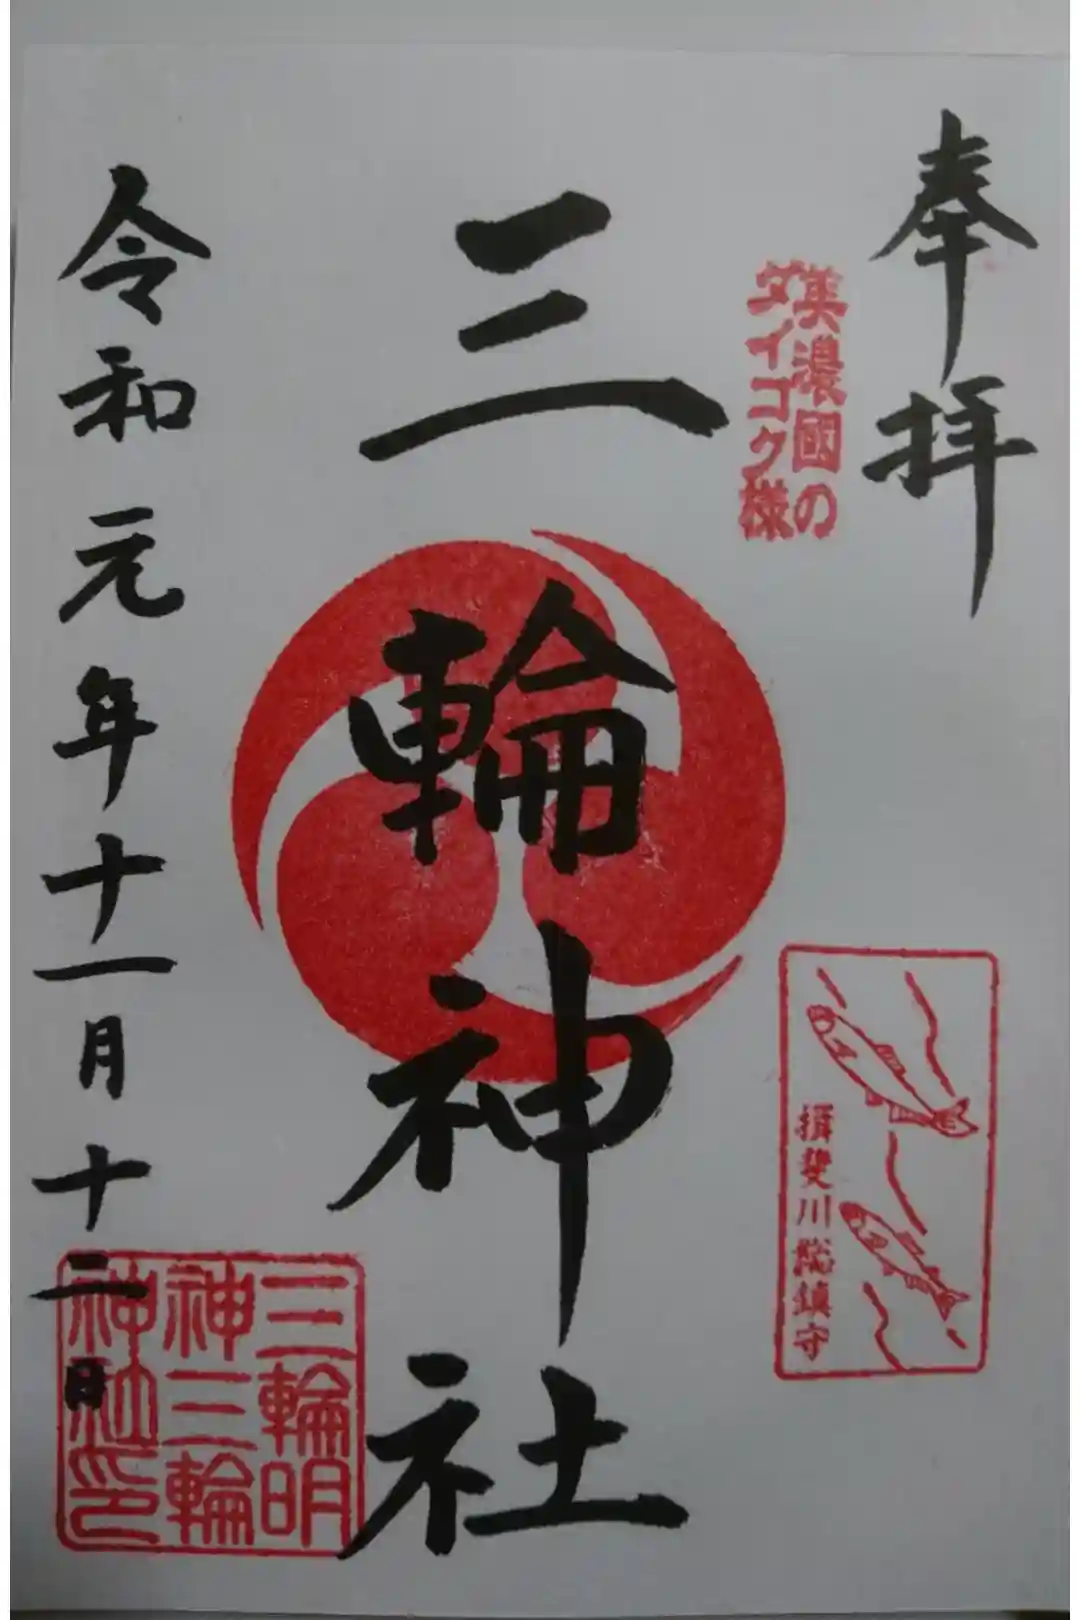 奉拝
美濃國の
ダイコク様
揖斐川総鎮守
三輪神社
三輪明
神三輪
神社印
令和元年十一月十二日